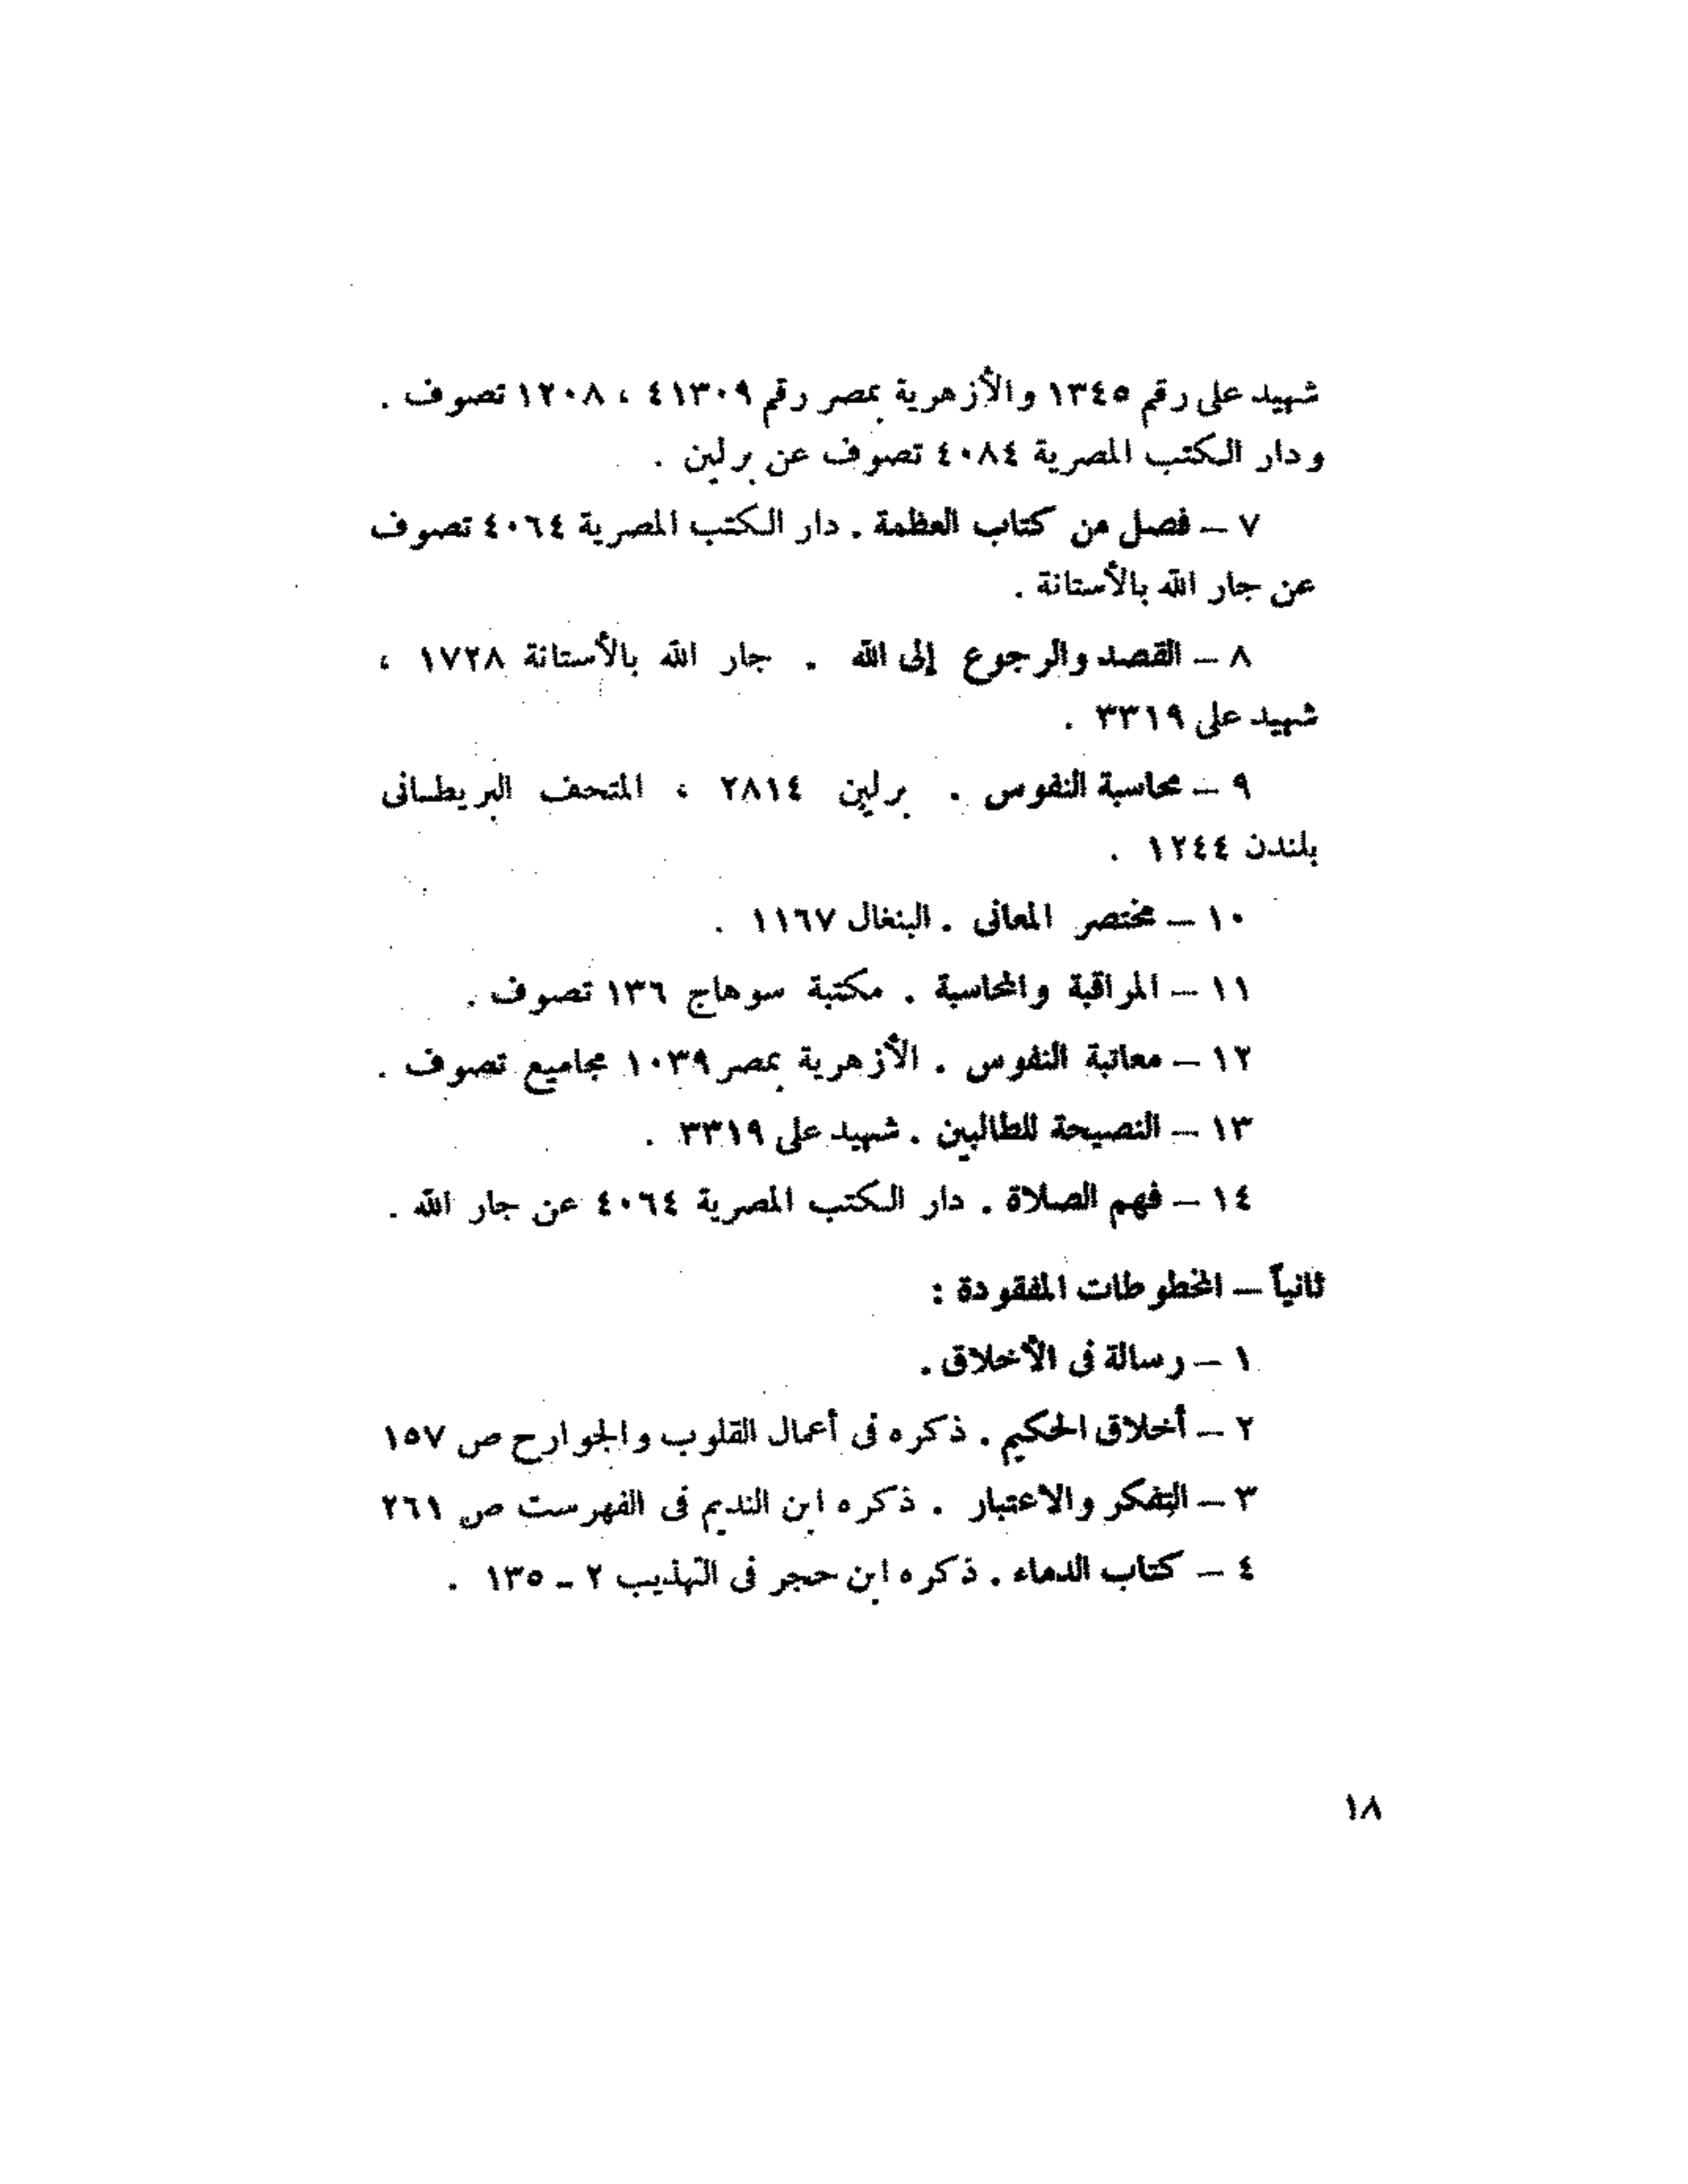 شهيد على رقم ١٣٤٥ والأزهرية بمصر رقم ٤١٣٠٩ ، ١٢٠٨ تصوف .
ودار الكتب المصرية ٤٠٨٤ تصوف عن برلين .
٧ – فصل من كتاب العظمة . دار الكتب المصرية ٤٠٦٤ تصوف
عن جار الله بالأستانة .
٨ – القصد والرجوع إلى الله . جار الله بالأستانة ١٧٢٨ ،
شهيد على ٣٣١٩ .
٩ – محاسبة النفوس . برلين ٢٨١٤ ، المتحف البريطانى
بلندن ١٢٤٤ .
١٠ – مختصر المعانى . البنغال ١١٦٧ .
١١ – المراقبة والمحاسبة . مكتبة سوهاج ١٣٦ تصوف .
١٢ – معاتبة النفوس . الأزهرية بمصر ١٠٣٩ مجاميع تصوف .
١٣ – النصيحة للطالبين . شهيد على ٣٣١٩ .
١٤ – فهم الصلاة . دار الكتب المصرية ٤٠٦٤ عن جار الله .
ثانياً – المخطوطات المفقودة :
١ – رسالة فى الأخلاق .
٢ – أخلاق الحكيم . ذكره فى أعمال القلوب والجوارح ص ١٥٧
٣ – التفكر والاعتبار . ذكره ابن النديم فى الفهرست ص ٢٦١
٤ – كتاب الدماء . ذكره ابن حجر فى التهذيب ٢ – ١٣٥ .
١٨